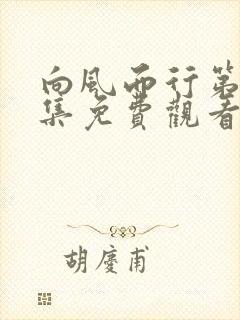 向風而行第
集免費觀看
胡慶甫